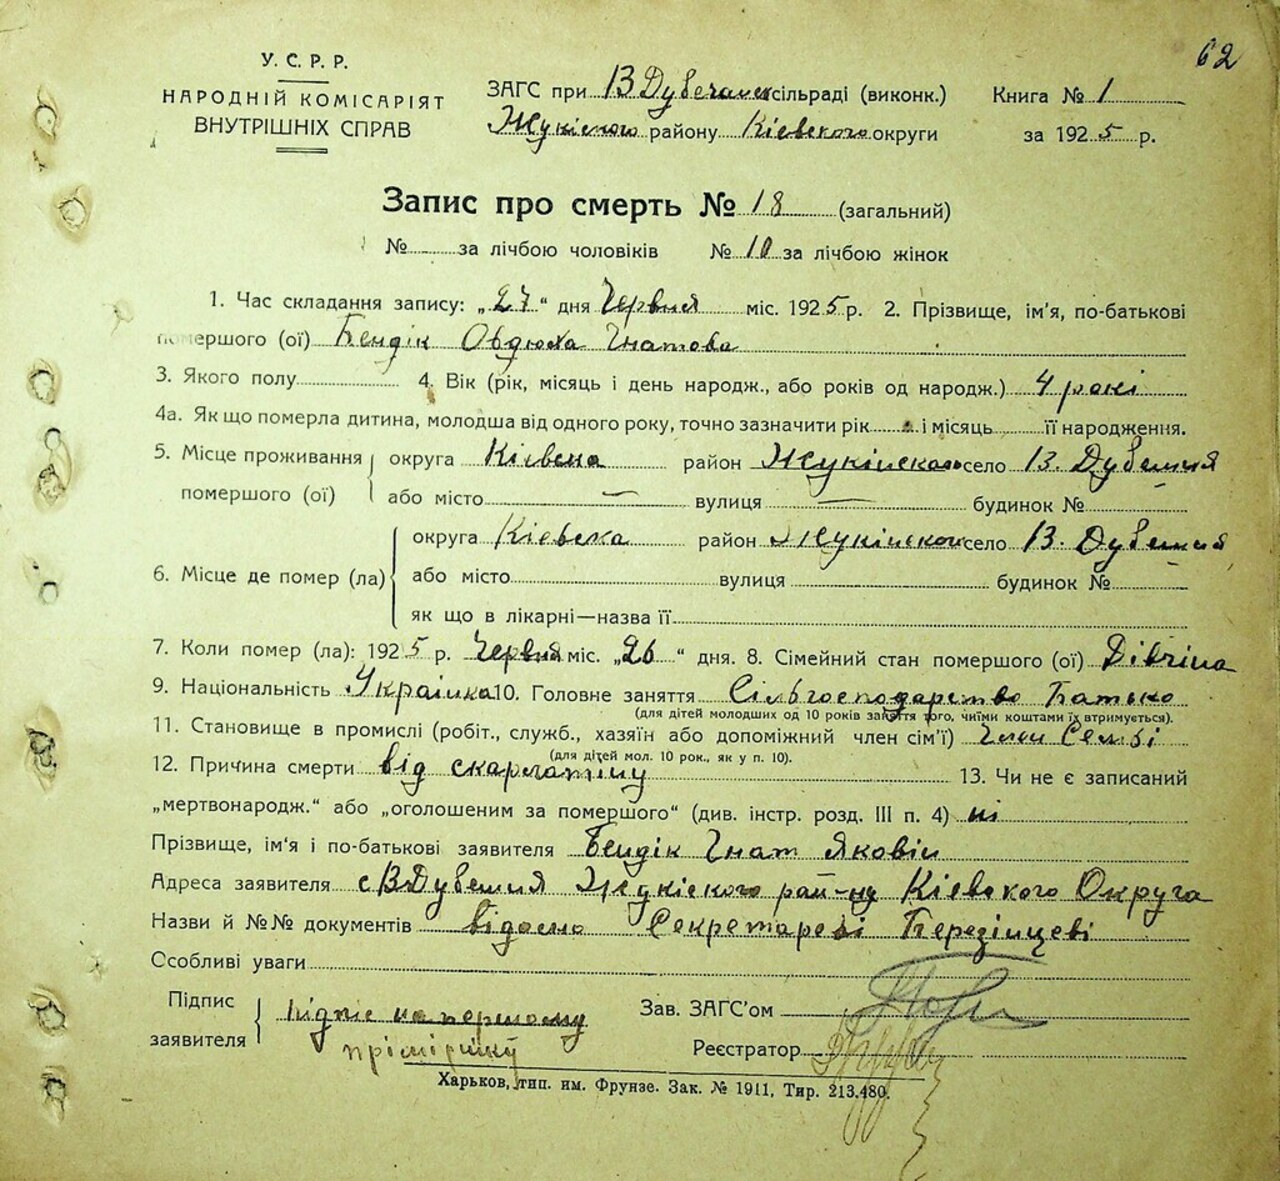 62
У. С. Р. Р.
НАРОДНІЙ КОМІСАРІЯТ
ВНУТРІШНІХ СПРАВ
ЗАГС при В Дубечанск сільраді (виконк.)
Жукінского району Кіевского округи
Книга № 1
за 1925 р.
Запис про смерть № 18 (загальний)
№ за лічбою чоловіків № 10 за лічбою жінок
1. Час складання запису: „27“ дня Червня міс. 1925 р. 2. Прізвище, ім'я, по-батькові
помершого (ої) Бендік Овдюха Гнатова
3. Якого полу 4. Вік (рік, місяць і день народж., або років од народж.) 4 рокі
4а. Як що померла дитина, молодша від одного року, точно зазначити рік і місяць її народження.
5. Місце проживання помершого (ої) округа Кіевска район Жукінского село В. Дубечня
або місто — вулиця — будинок №
6. Місце де помер (ла) округа Кіевска район Жукінского село В. Дубечня
або місто вулиця будинок №
як що в лікарні—назва її
7. Коли помер (ла): 1925 р. Червня міс. „26“ дня. 8. Сімейний стан помершого (ої) Дівчіна
9. Національність Українка 10. Головне заняття Сільгосподарство Батько
(для дітей молодших од 10 років заняття того, чиїми коштами їх втримується).
11. Становище в промислі (робіт., служб., хазяїн або допоміжний член сім'ї) Член Семьі
(для дітей мол. 10 рок., як у п. 10).
12. Причина смерти від скарлатіну 13. Чи не є записаний
„мертвонародж.“ або „оголошеним за помершого“ (див. інстр. розд. III п. 4) ні
Прізвище, ім'я і по-батькові заявителя Бендік Гнат Яковін
Адреса заявителя с В Дубечня Жукінского рай-ну Кіевского Округа
Назви й №№ документів відомо Секретареві Березінцеві
Особливі уваги
Підпис заявителя підпис на першому
прімірнику
Зав. ЗАГС'ом
Реєстратор
Харьков, тип. им. Фрунзе. Зак. № 1911, Тир. 213.480.